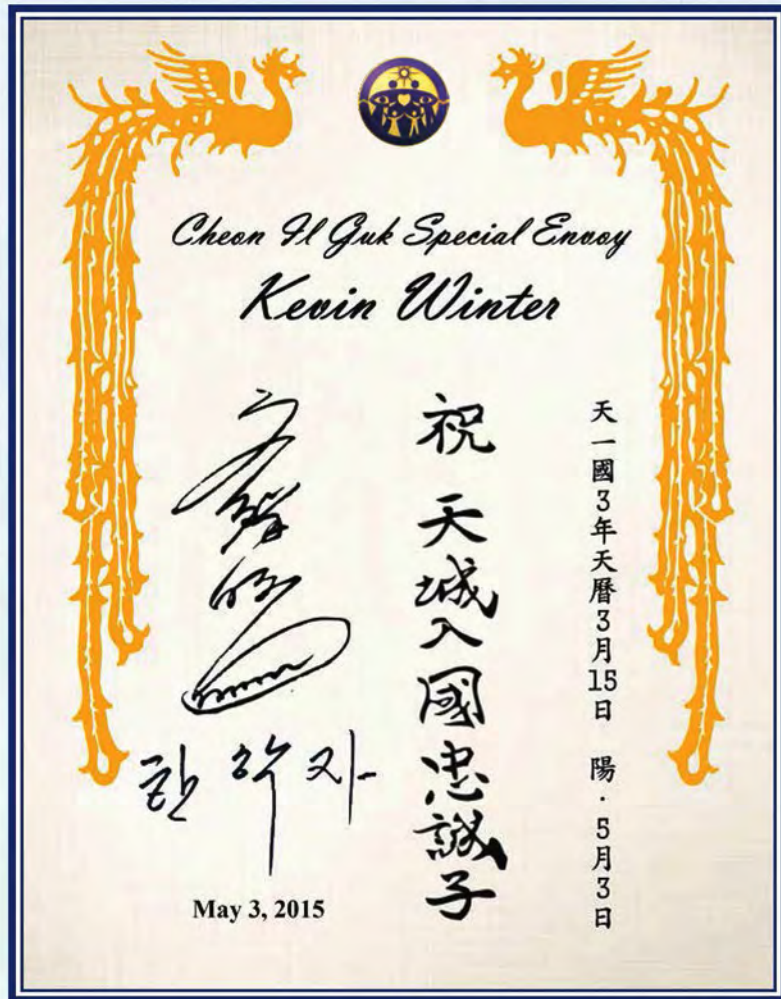 Cheon Il Guk Special Envoy
Kevin Winter
天一國3年天曆3月15日 陽·5月3日
祝 天城入國忠誠子
文鮮明
한 학 자
May 3, 2015